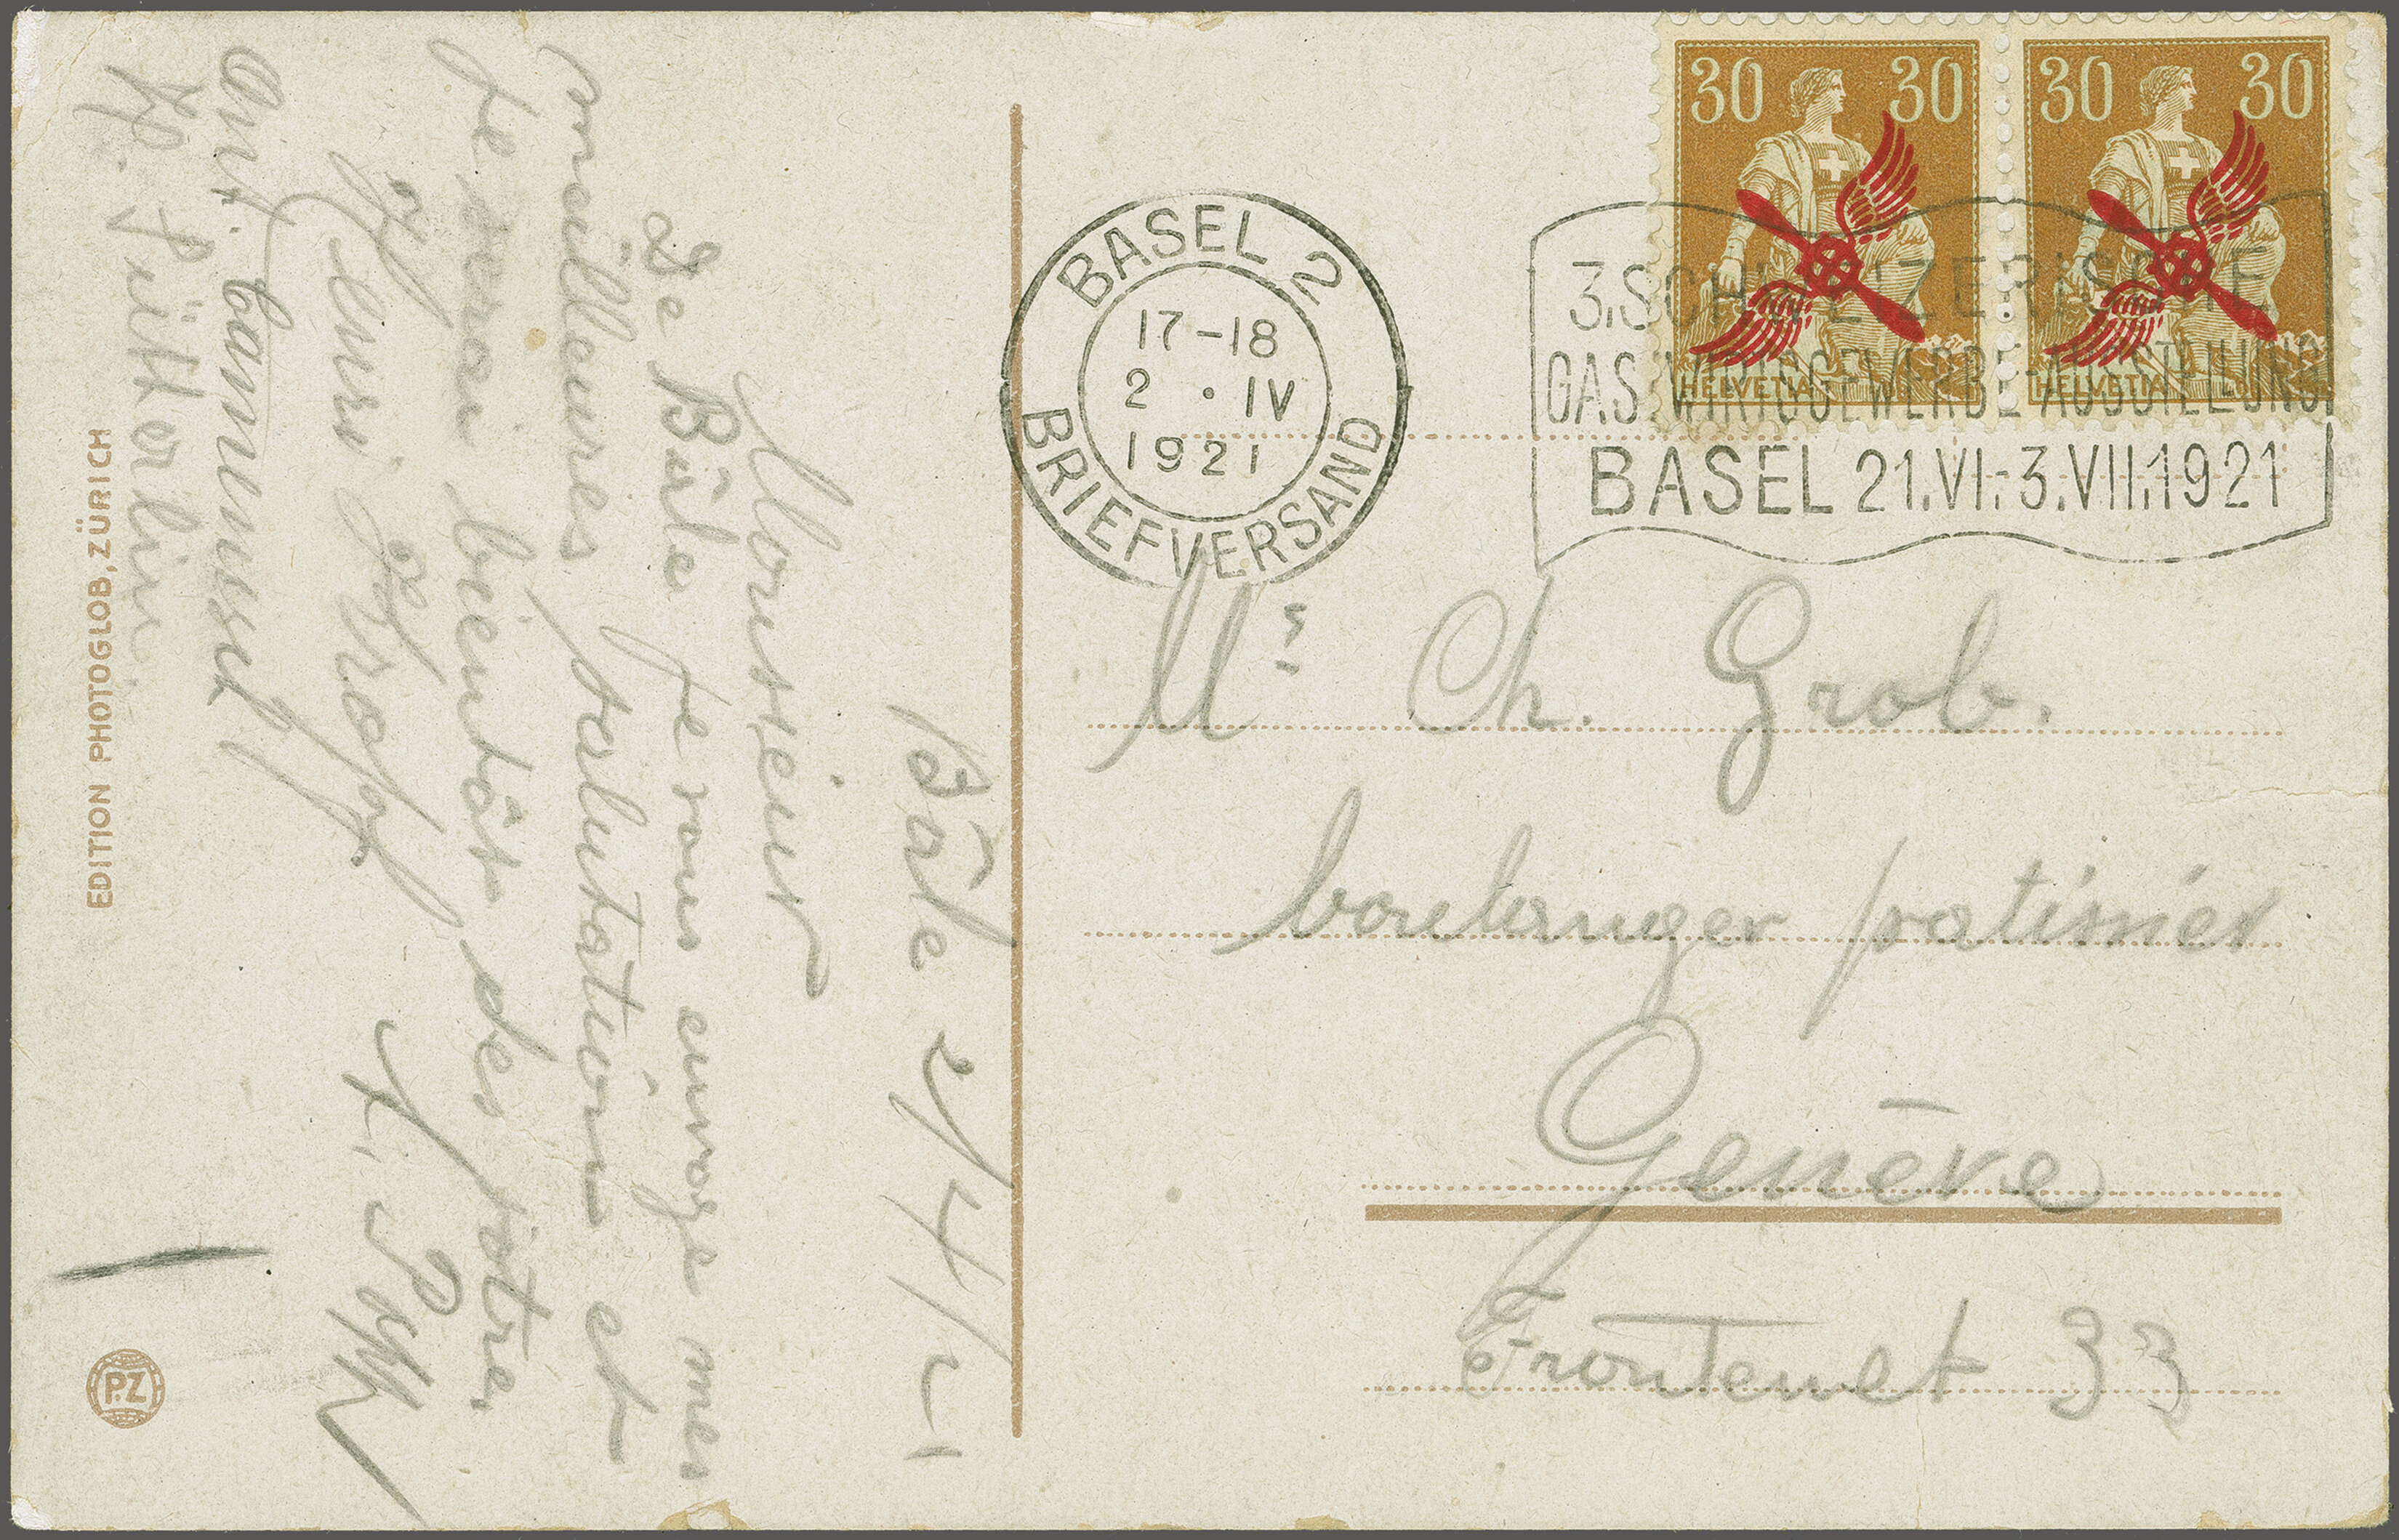 30 30 30 30
HELVETIA HELVETIA
BASEL 2
17-18
2 • IV
1921
BRIEFVERSAND
3. SCHWEIZERISCHE
GASTWIRTSGEWERBE-AUSSTELLUNG
BASEL 21.VI.-3.VII.1921
Mr Ch. Grob.
boulanger patissier
Genève
Frontenet 33
Bâle 2/4/21
Monsieur
De Bâle je vous envoye mes
meilleures salutations et
je serai bientôt des vôtre.
Henri
Ant.
EDITION PHOTOGLOB, ZÜRICH
P.Z